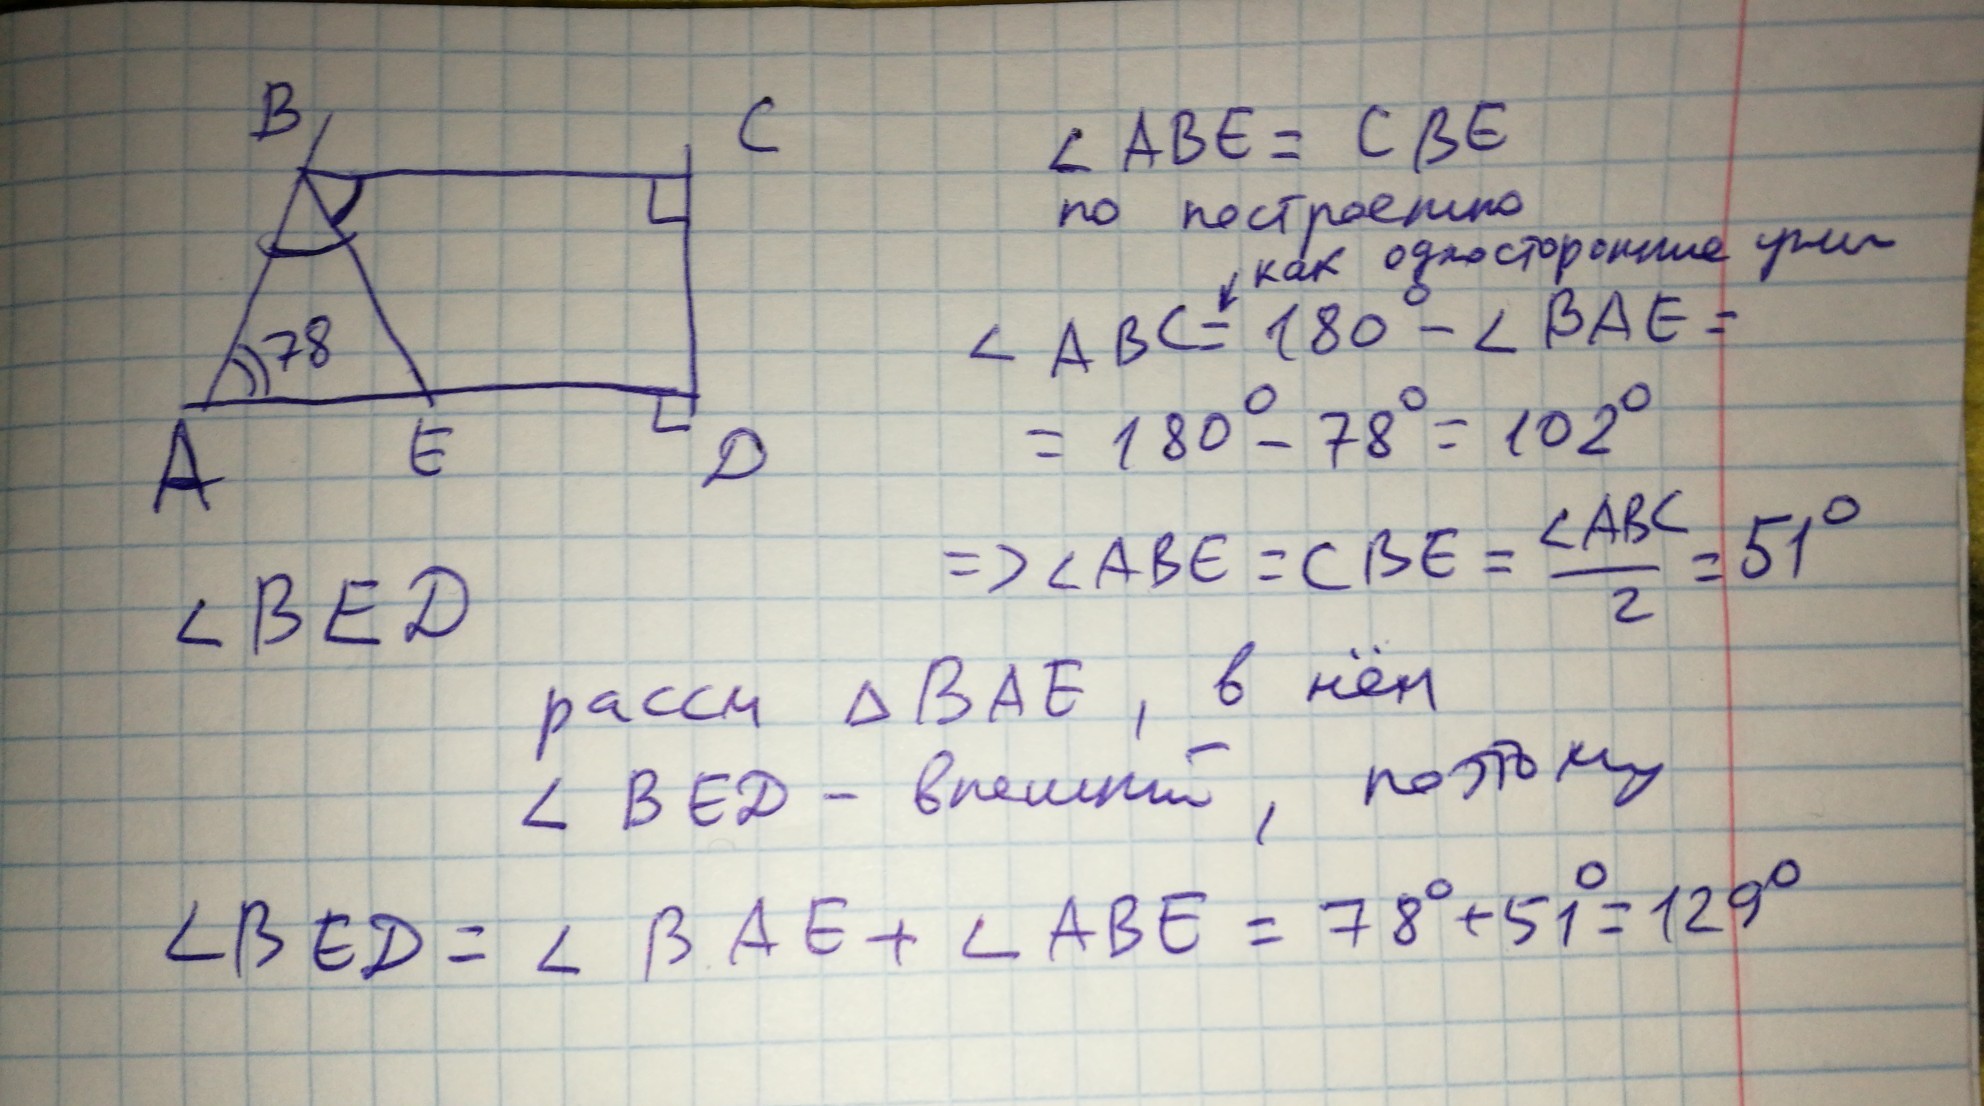 B
C
78
A
E
D
∠ABE = CBE
по построению
как односторонние углы
∠ABC = 180° - ∠BAE =
= 180° - 78° = 102°
=> ∠ABE = CBE = ∠ABC/2 = 51°
∠BED
рассм △BAE, в нём
∠BED - внешний, поэтому
∠BED = ∠BAE + ∠ABE = 78° + 51° = 129°